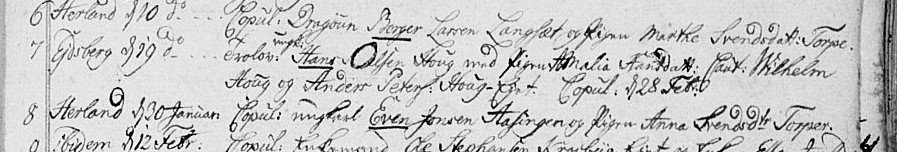 6 Herland d 10 do Copul: Dragoun Borger Larsen Langsæt og Pigen Marthe Svendsdatt: Torpe.
7 Eidsberg d 19 do Trolov: ungk: Hans Olsen Houg med Pigen Amalia Caut: Wilhelm
Houg og Anders Peters: Houg Copul: d 28 Febr:
8 Herland d 30 Januari Copul: ungkarl Even Jonsen Hasingen og Pigen Anna Svendsdtr Torper.
9 Ibidem d 12 Febr: Copul: Enkemand Ole Stephansen